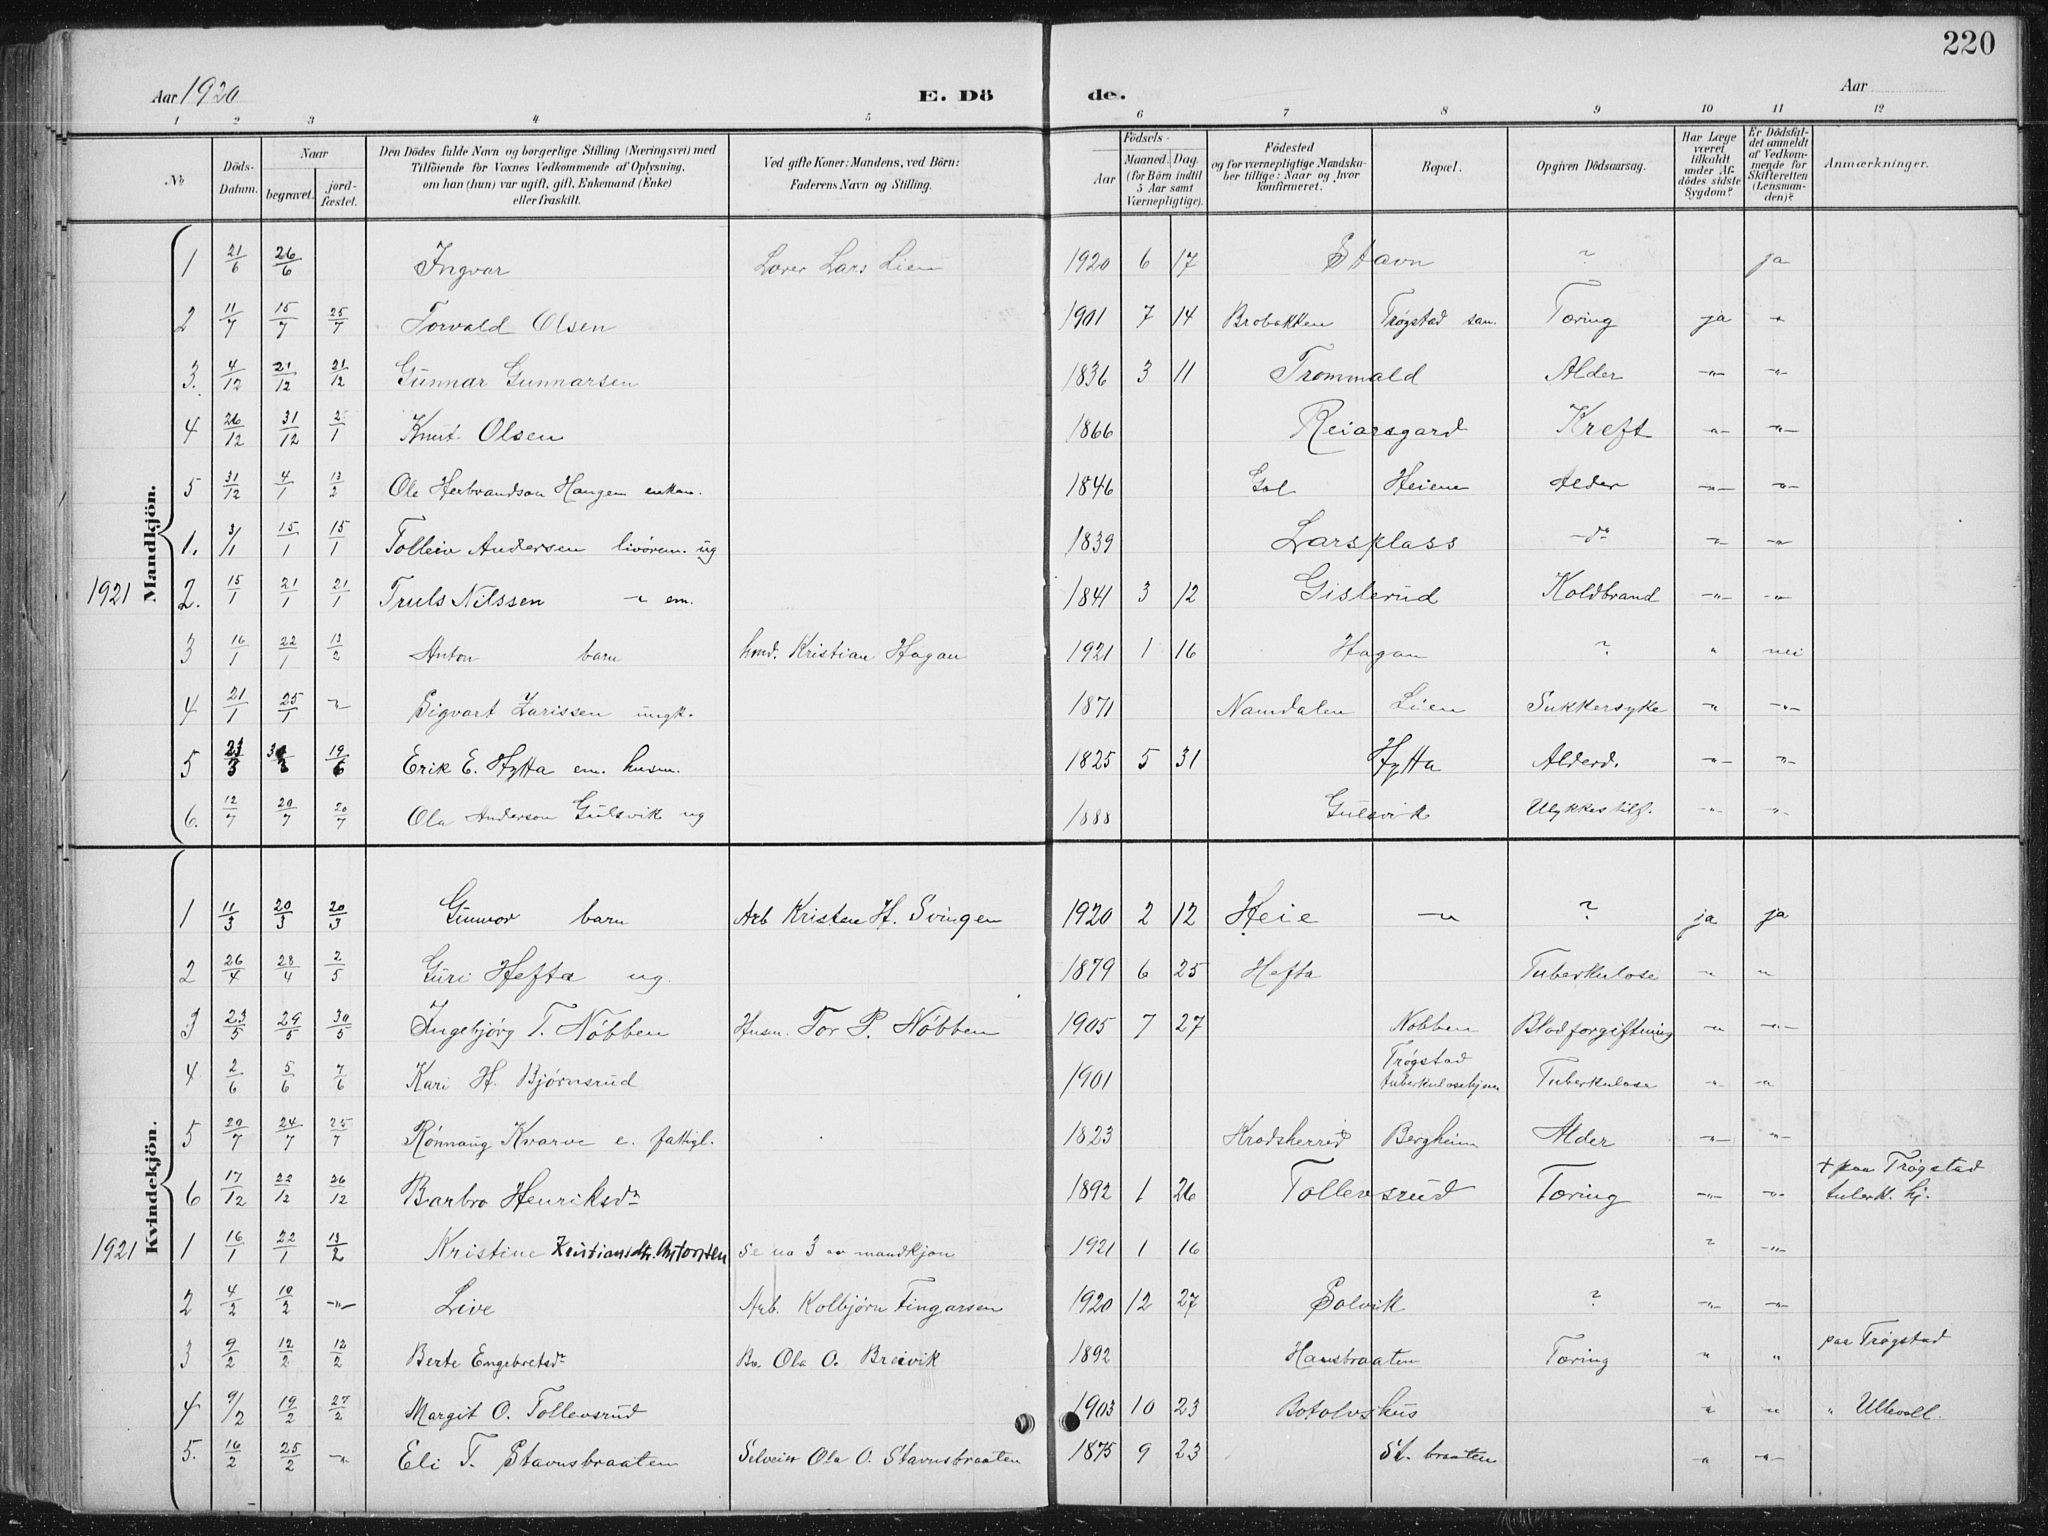 220
Aar 1920 E. Dö de. Aar
1 2 3 4 5 6 7 8 9 10 11 12
No Döds-Datum. Naar begravet. jord-fæstet. Den Dödes fulde Navn og borgerlige Stilling (Næringsvei) med Tilföiende for Voxnes Vedkommende af Oplysning, om han (hun) var ugift, gift, Enkemand (Enke) eller fraskilt. Ved gifte Koner: Mandens, ved Börn: Faderens Navn og Stilling. Födsels- Aar Maaned. Dag. (for Börn indtil 5 Aar samt Værnepligtige). Födested og for værnepligtige Mandskaber tillige: Naar og hvor konfirmeret. Bopæl. Opgiven Dödsaarsag. Har Læge været tilkaldt under Afdödes sidste Sygdom? Er Dödsfaldet anmeldt af Vedkommende for Skifteretten (Lensmanden)? Anmærkninger.
Mandkjön.
1 21/6 26/6 Ingvar Lærer Lars Lien 1920 6 17 Stavn ? ja
2 11/7 15/7 25/7 Torvald Olsen 1901 7 14 Brobakken Trøgstad san. Tæring ja
3. 4/12 21/12 21/12 Gunnar Gunnarsen 1836 3 11 Trommald Alder -"- -"-
4 26/12 31/12 2/1 Knut Olsen 1866 Reiarsgard Kreft -"- -"-
5 31/12 4/1 13/2 Ole Herbrandson Haugen enkem. 1846 Gol Heiene Alder -"- -"-
1. 3/1 15/1 15/1 Tolleiv Andersen livørem. ug 1839 Larsplass -do- -"- -"-
1921 2. 15/1 21/1 21/1 Truls Nilssen -"- em. 1841 3 12 Gislerud Koldbrand -"- -"-
3 16/1 22/1 13/2 Anton barn hmd. Kristian Hagan 1921 1 16 Hagan ? " nei
4 21/1 25/1 -"- Sigvart Larissen ungk. 1871 Namdalen Lien Sukkersyke -"- -"-
5 23/3 /3 19/6 Erik E. Hytta em. husm. 1825 5 31 Hytta Alderd. -"- -"-
6. 12/7 20/7 20/7 Ola Anderson Gulsvik ug 1888 Gulsvik Ulykkestilf. -"- -"-
Kvindekjön.
1 11/3 20/3 20/3 Gunvor barn Arb Kristen H. Svingen 1920 2 12 Heie -"- ? ja ja
2 26/4 28/4 2/5 Guri Hefta ug. 1879 6 25 Hefta Tuberkulose -"- -"-
3 23/5 29/5 30/5 Ingebjørg T. Nøbben Husm. Tor P. Nøbben 1905 7 27 Nøbben Blodforgiftning -"- -"-
4 2/6 5/6 7/6 Kari H. Bjørnsrud 1901 Trøgstad tuberkulosehjem Tuberkulose -"- -"-
5 20/7 24/7 25/7 Rønnaug Kvarve e. fattigl. 1823 Krødsherred Bergheim Alder -"- -"-
6 17/12 22/12 26/12 Barbro Henriksdr 1892 1 26 Tollevsrud Tæring -"- -"- + paa Trøgstad tuberk. hj.
1921 1 16/1 22/1 13/2 Kristine Kristiansdtr. se no 3 av mandkjøn 1921 1 16 ? -"-
2 4/2 10/2 -"- Live Arb. Kolbjørn Fingarsen 1920 12 27 Solvik ? -"- -"-
3 9/2 12/2 12/2 Berte Engebretsdr Br. Ola O. Breivik 1892 Hansbraaten Tæring " " paa Trøgstad
4 9/2 19/2 27/2 Margit O. Tollevsrud 1903 10 23 Botolvshus " -"- " Ullevoll.
5. 16/2 25/2 -"- Eli T. Stavnsbraaten Selveier Ola O. Stavnsbraaten 1875 9 23 St. braaten -"- -"-